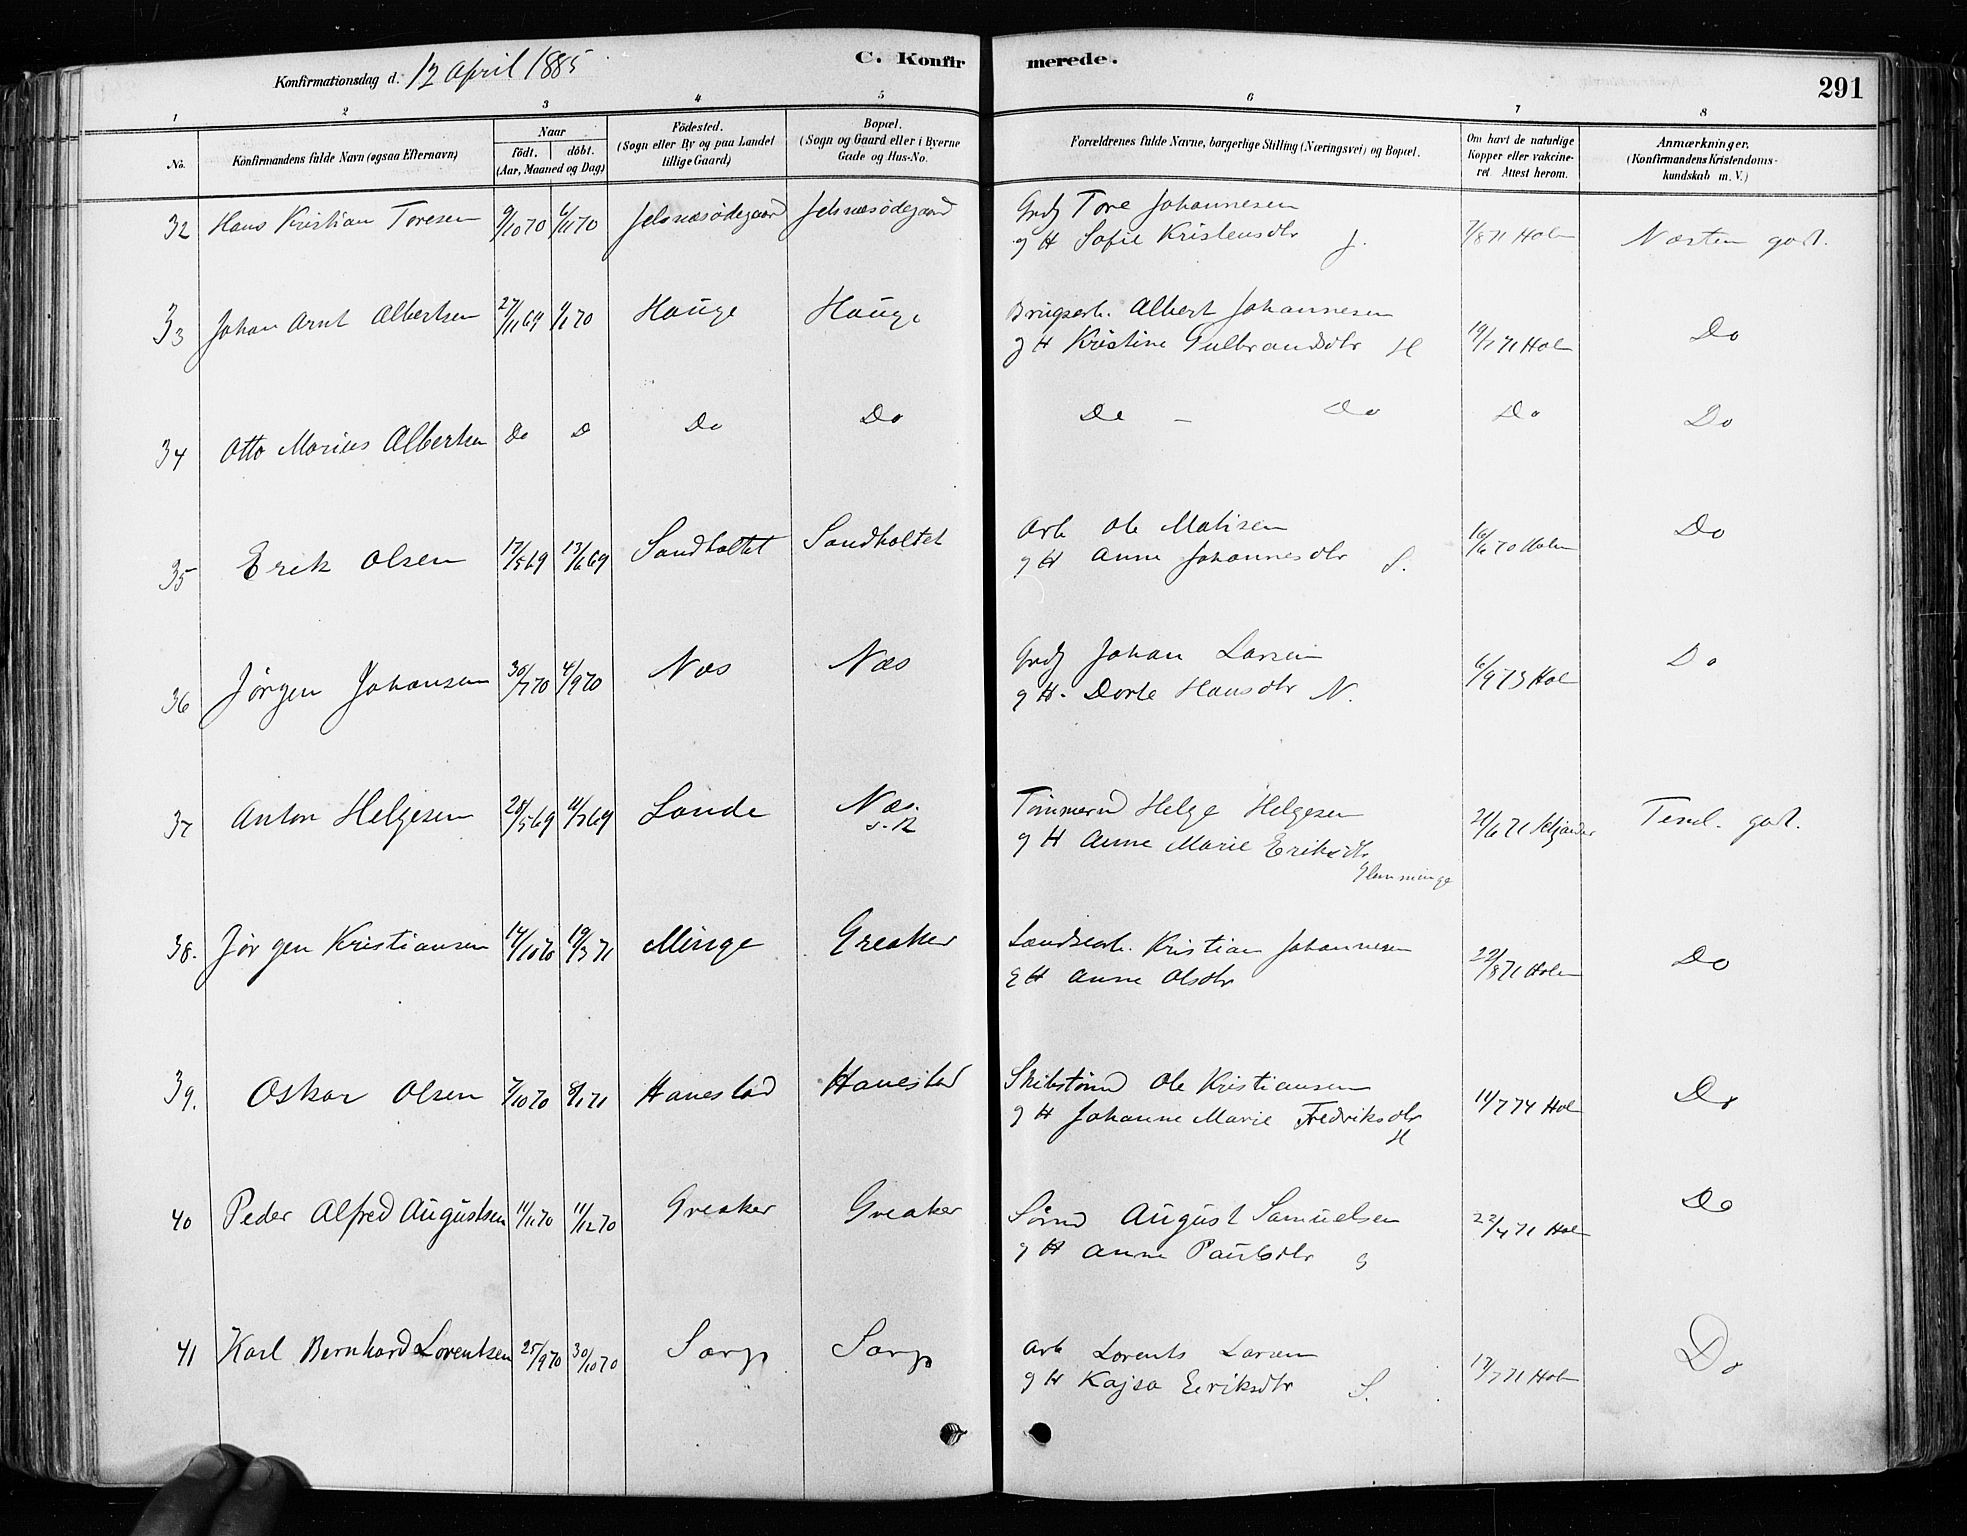 Konfirmationsdag d. 12 April 1885
C. Konfirmerede.
291
1 2 3 4 5 6 7 8
No.
Konfirmandens fulde Navn (ogsaa Efternavn)
Naar
födt. döbt.
(Aar, Maaned og Dag)
Födested.
(Sogn eller By og paa Landet
tillige Gaard)
Bopæl.
(Sogn og Gaard eller i Byerne
Gade og Hus-No.
Forældrenes fulde Navne, borgerlige Stilling (Næringsvei) og Bopæl.
Om havt de naturlige
Kopper eller vakcine-
ret. Attest herom.
Anmærkninger.
(Konfirmandens Kristendoms-
kundskab m. V.)
32 Hans Kristian Toresen 9/10 70 6/11 70 Jelsnæsødegaard Jelsnæsødegaard Grdj Tore Johannesen 7/8 71 Holm Næsten godt.
g H Sofie Kristensdtr J.
33 Johan Arnt Albertsen 27/11 69 1/1 70 Hauge Hauge Brugserb. Albert Johannesen 19/1 71 Holm Do
g H Kristine Gulbrandsdtr H
34 Otto Marius Albertsen Do D Do Do Do – Do Do Do
35 Erik Olsen 17/5 69 13/6 69 Sandholtet Sandholtet Arb Ole Matisen 16/6 70 Holm Do
g H Anne Johannesdtr S.
36 Jørgen Johansen 30/7 70 4/9 70 Næs Næs Grdj Johan Larsen 6/9 73 Hol Do
g H. Dorte Hansdtr N.
37 Anton Helgesen 28/5 69 11/7 69 Lande Næs. Tømmermd Helge Helgesen 21/6 71 Temel. godt.
s. 12
g H Anne Marie Eriksdtr
Glemminge
38. Jørgen Kristiansen 14/10 70 19/3 71 Minge Greaker Landsearb. Kristian Johannesen 22/8 71 Holm Do
g H Anne Olsdtr
39. Oskar Olsen 7/10 70 8/1 71 Hanestad Hanestad Skibstømd Ole Kristiansen 14/7 74 Hol Do
g H Johanne Marie Fredriksdtr
H
40 Peder Alfred Augustsen 14/11 70 11/12 70 Greaker Greaker Sømd August Samuelsen 22/4 71 Hol Do
g H Anne Paulsdtr G
41 Karl Bernhard Lorentsen 25/9 70 30/10 70 Sarp Sarp Arb Lorents Larsen 17/7 71 Holm Do
g H Kajsa Eeriksdtr S.